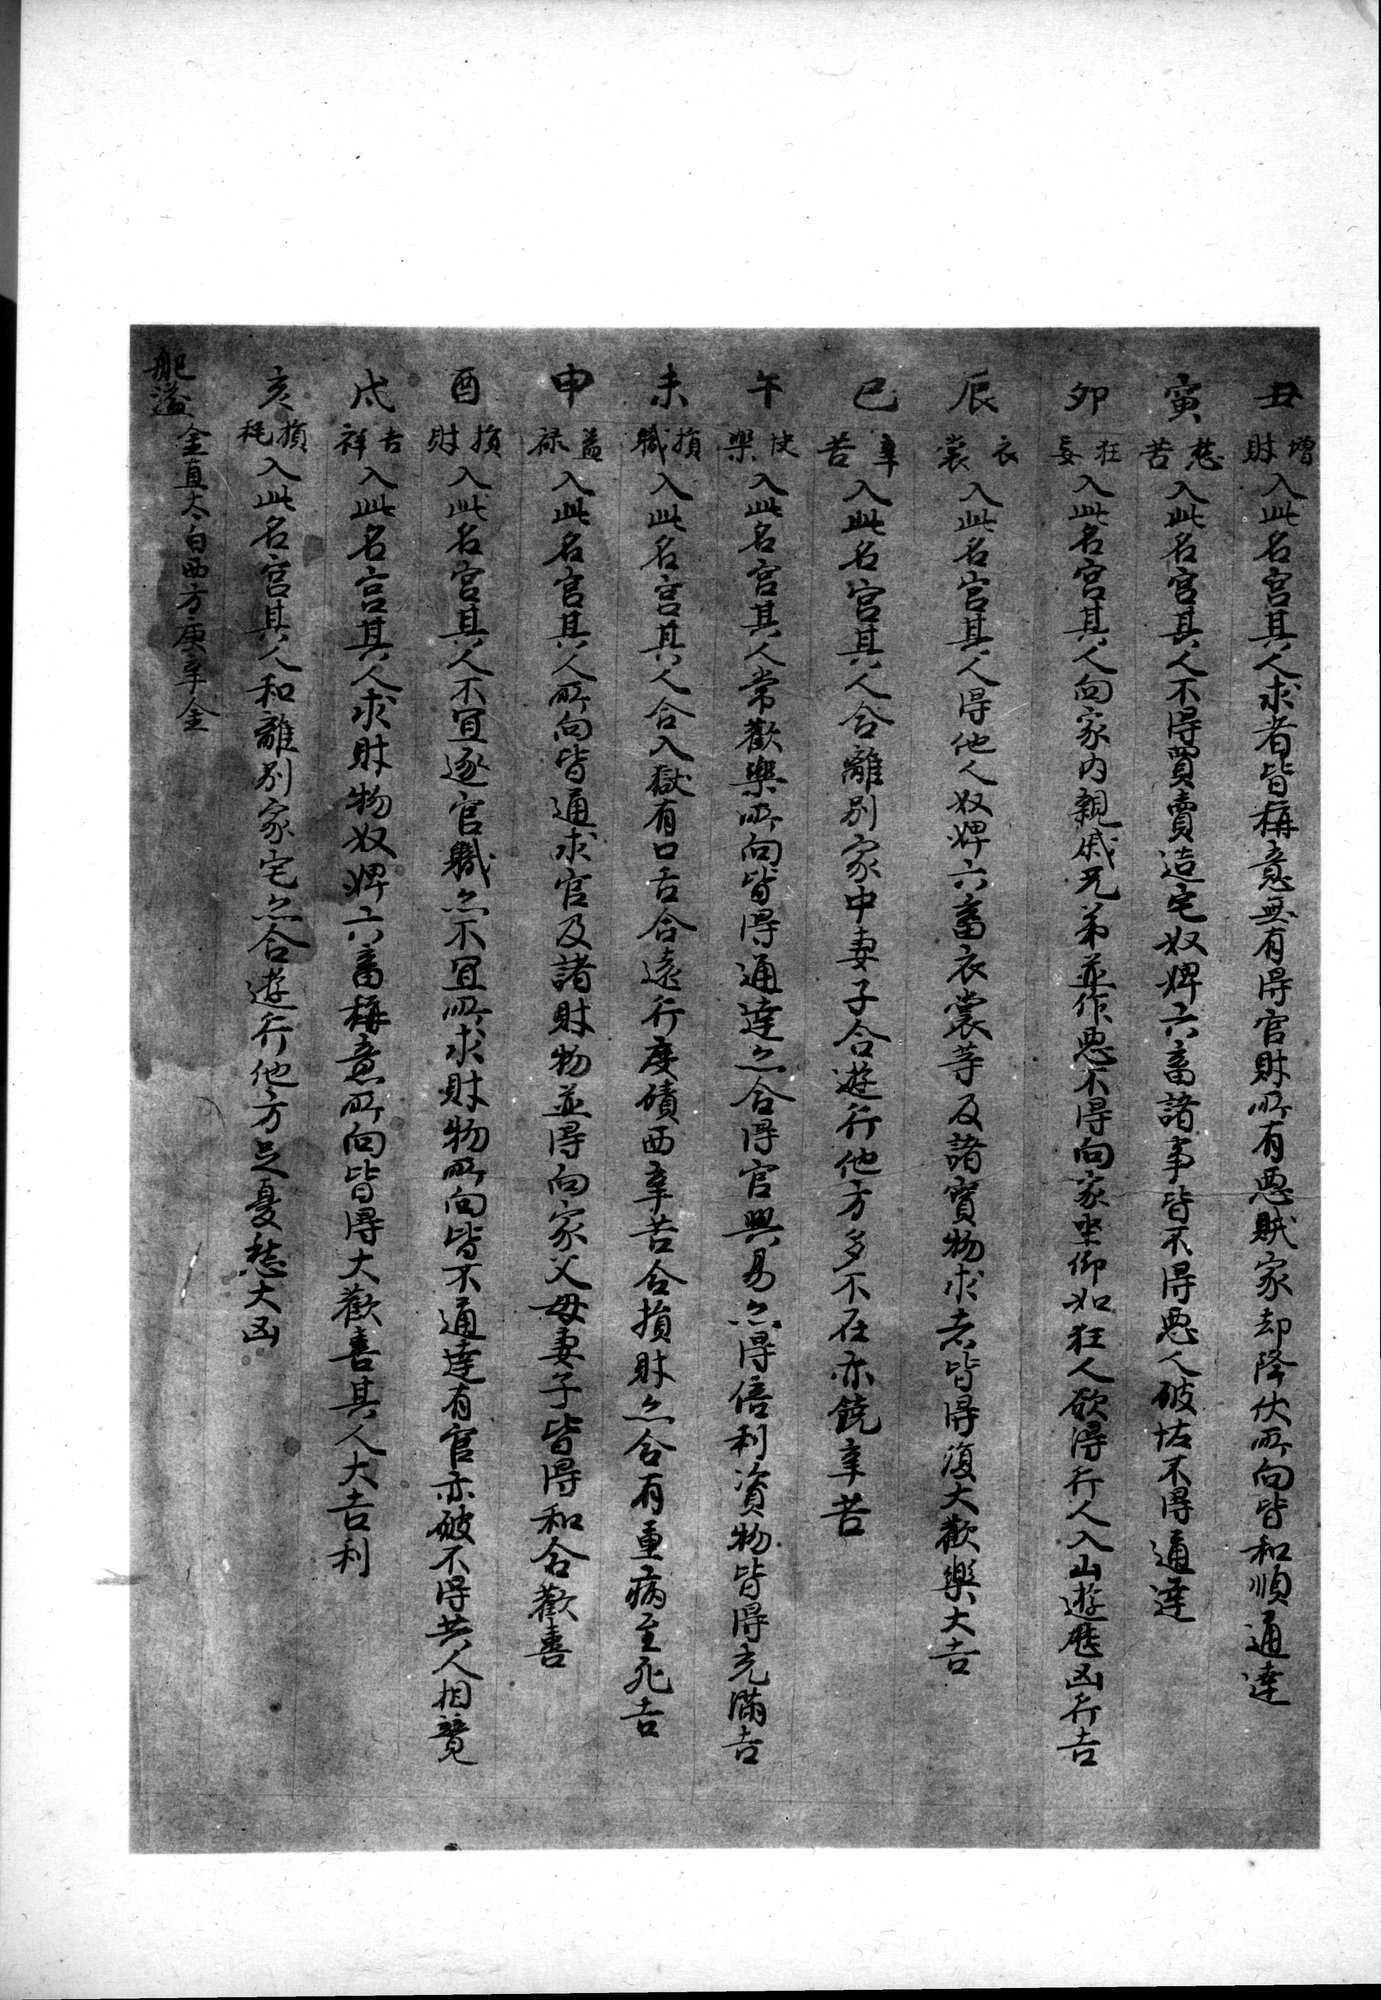 丑增財入此名宮其人求者皆稱意無有得官財所有惡賊家却降伏所向皆和順通達
寅愁苦入此名宮其人不得買賣造宅奴婢六畜諸事皆不得惡人破不得通達
卯狂妄入此名宮其人向家內親戚兄弟並作惡不得向家坐卧如狂人欲得行人入山遊歷凶行吉
辰衣裳入此名宮其人得他人奴婢六畜衣裳等及諸寶物求者皆得復大歡樂大吉
巳辛苦入此名宮其人合離別家中妻子合遊行他方多不在亦饒辛苦
午快樂入此名宮其人常歡樂所向皆得通達亦合得官興易亦得倍利資物皆得充滿吉
未損職入此名宮其人合入獄有口舌合遠行度磧西辛苦合損財亦合有重病至死吉
申益祿入此名宮其人所向皆通求官及諸財物並得向家父母妻子皆得和合歡喜
酉損財入此名宮其人不宜逐官職亦不宜所求財物所向皆不通達有官亦破不得共人相競
戌吉祥入此名宮其人求財物奴婢六畜稱意所向皆得大歡喜其人大吉利
亥損耗入此名宮其人和離別家宅亦合遊行他方足憂愁大凶
那溢金直太白西方庚辛金